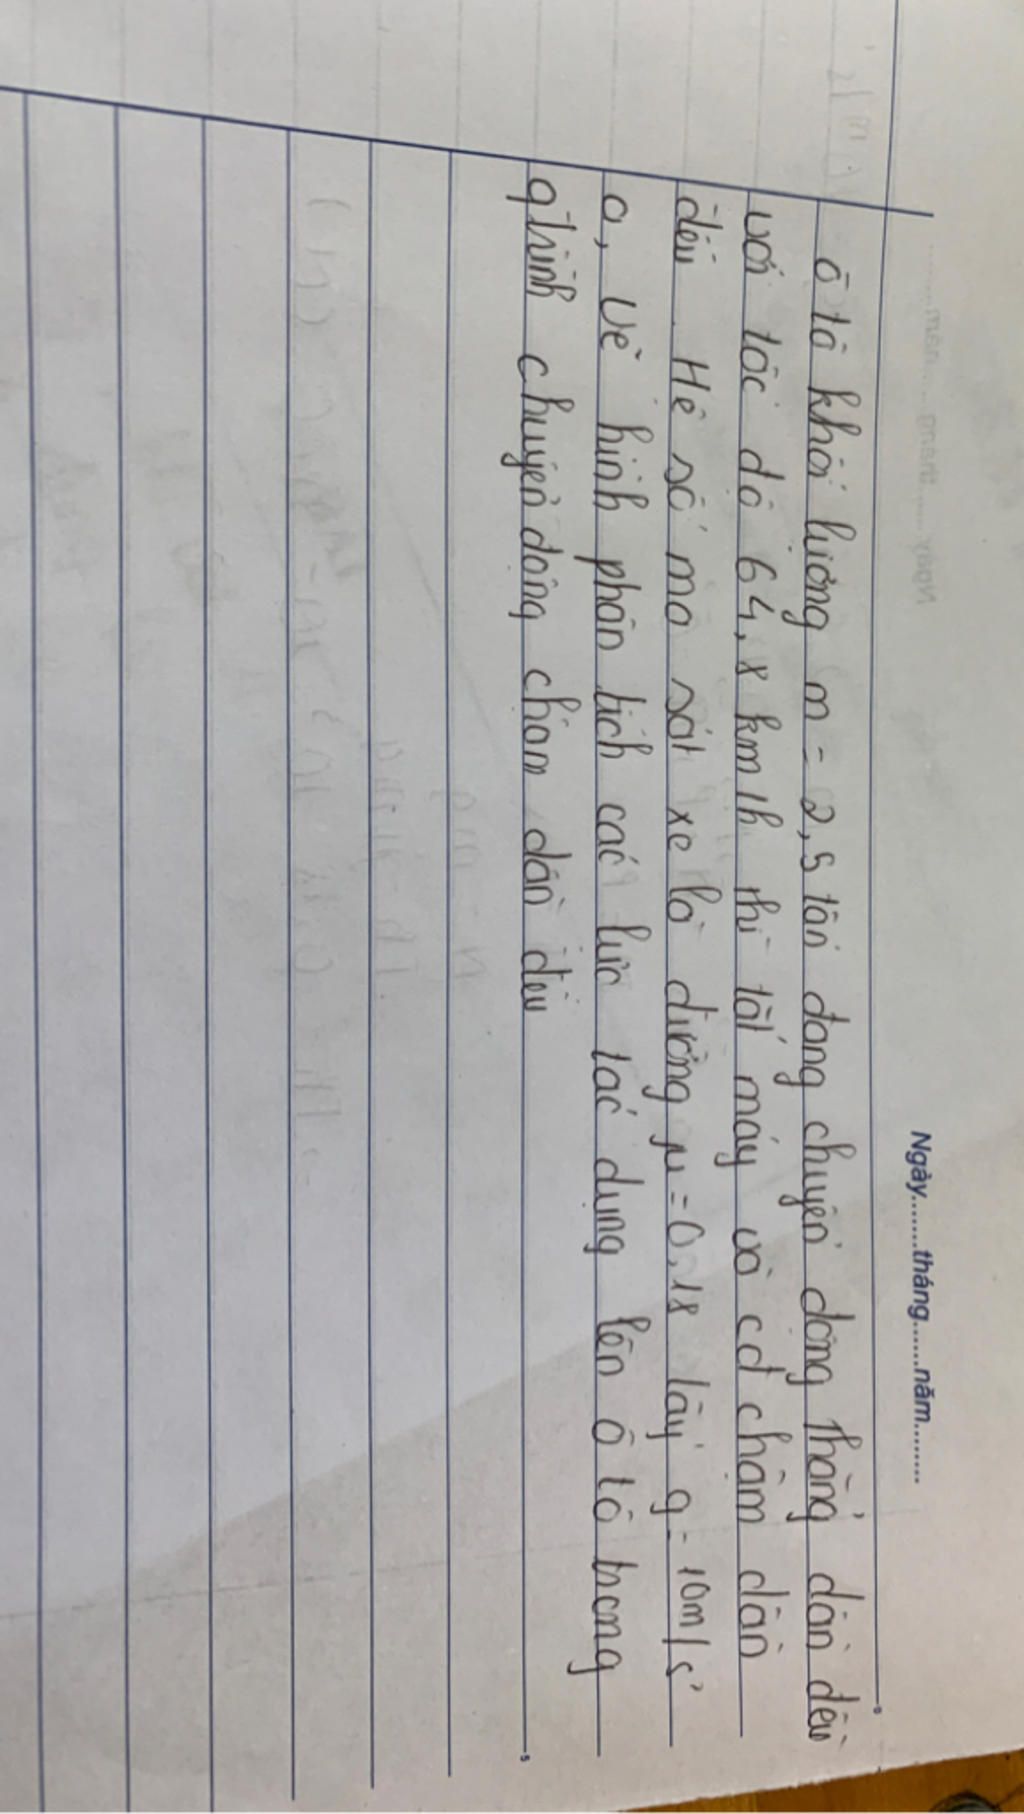 Ngày.......tháng......năm.........
ô tô khối lượng m = 2,5 tấn đang chuyển động thẳng dần đều
với tốc độ 64,8 km/h thì tắt máy và cđ chậm dần
đều. Hệ số ma sát xe là đường μ = 0,18 lấy g = 10m/s²
a, vẽ hình phân tích các lực tác dụng lên ô tô trong
qtrình chuyển động chậm dần đều